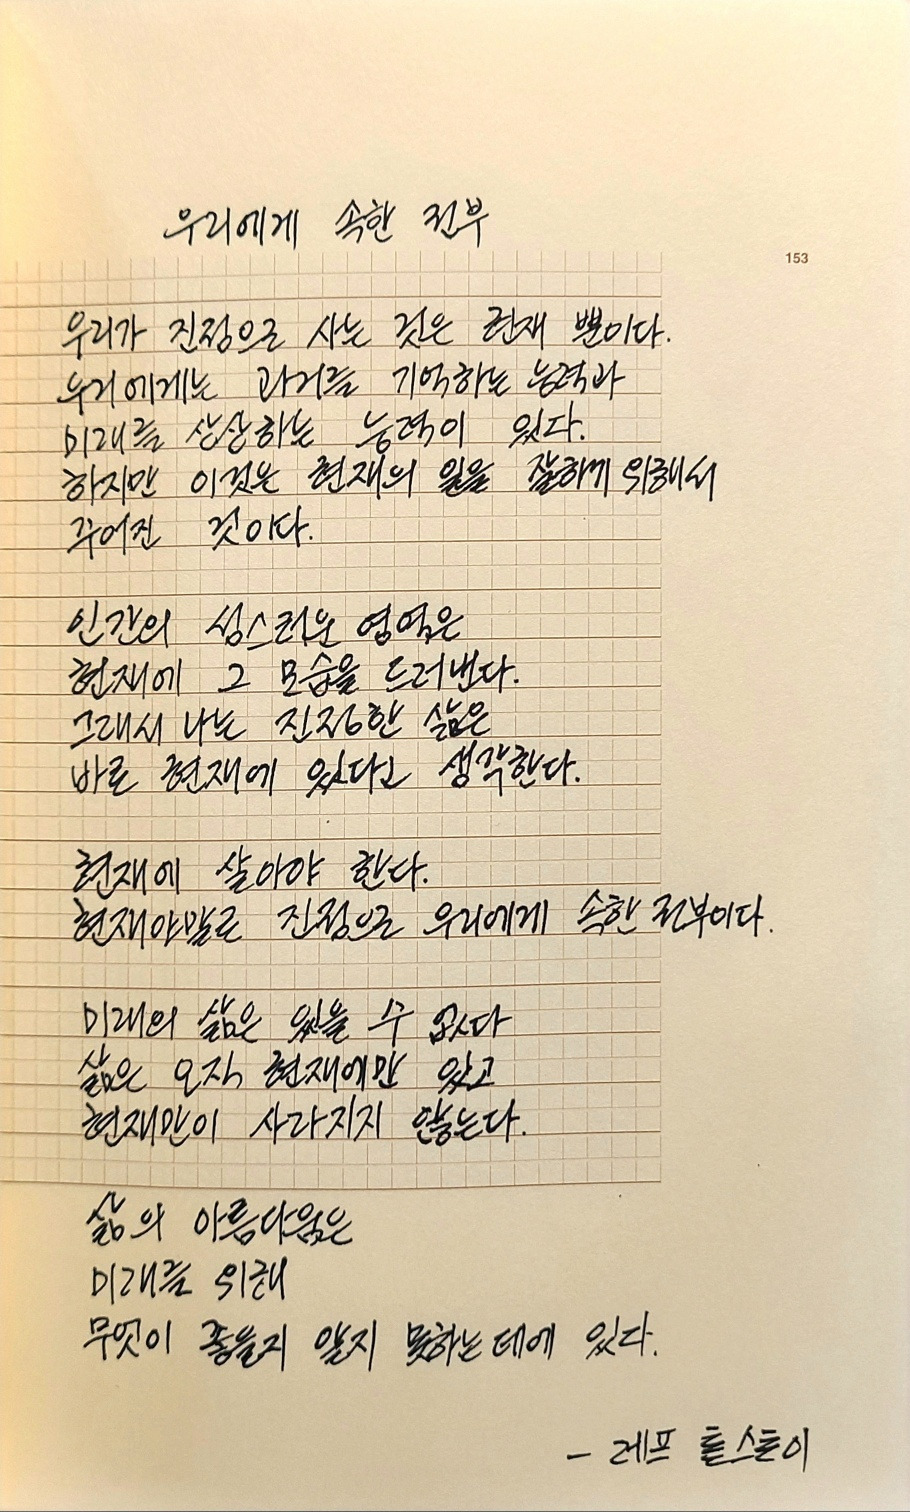 우리에게 속한 전부
153
우리가 진정으로 사는 것은 현재 뿐이다.
우리에게는 과거를 기억하는 능력과
미래를 상상하는 능력이 있다.
하지만 이것은 현재의 일을 잘하기 위해서
주어진 것이다.
인간의 성스러운 영역은
현재에 그 모습을 드러낸다.
그래서 나는 진정한 삶은
바로 현재에 있다고 생각한다.
현재에 살아야 한다.
현재야말로 진정으로 우리에게 속한 전부이다.
미래의 삶은 있을 수 없다
삶은 오직 현재에만 있고
현재만이 사라지지 않는다.
삶의 아름다움은
미래를 위해
무엇이 좋을지 알지 못하는 데에 있다.
- 레프 톨스토이